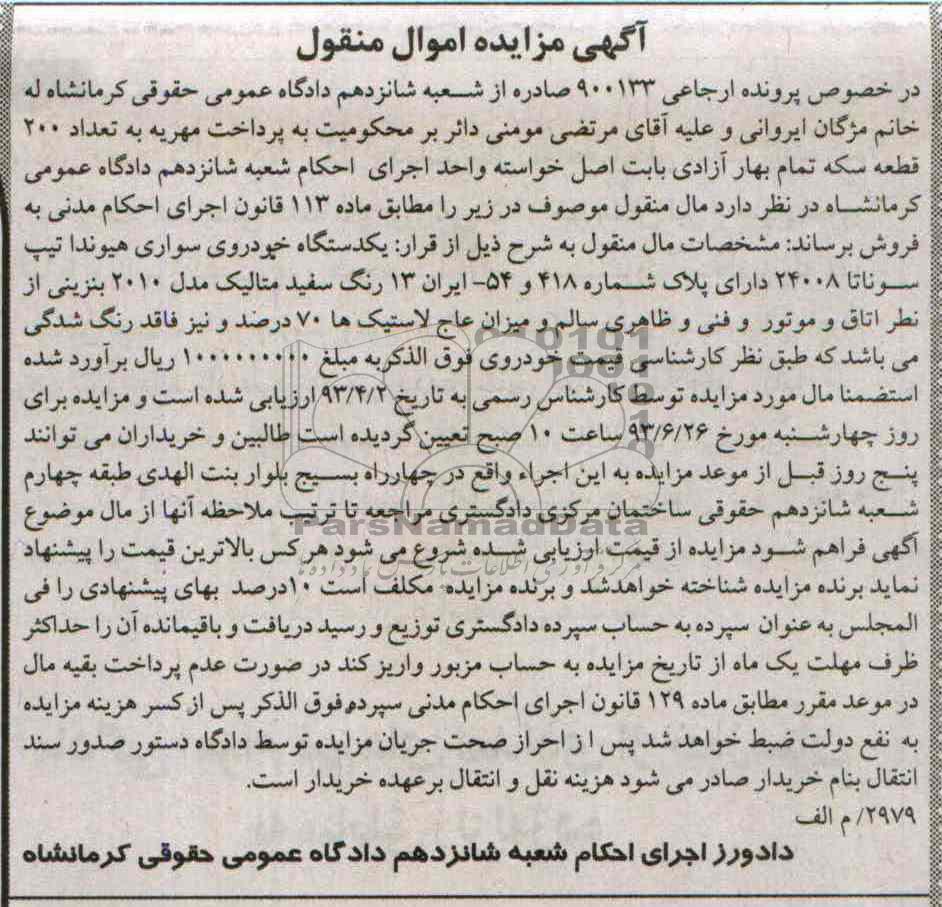 آگهی مزایده اموال منقول
در خصوص پرونده ارجاعی ۹۰۰۱۳۳ صادره از شعبه شانزدهم دادگاه عمومی حقوقی کرمانشاه له
خانم مژگان ایروانی و علیه آقای مرتضی مومنی دائر بر محکومیت به پرداخت مهریه به تعداد ۲۰۰
قطعه سکه تمام بهار آزادی بابت اصل خواسته واحد اجرای احکام شعبه شانزدهم دادگاه عمومی
کرمانشاه در نظر دارد مال منقول موصوف در زیر را مطابق ماده ۱۱۳ قانون اجرای احکام مدنی به
فروش برساند: مشخصات مال منقول به شرح ذیل از قرار: یکدستگاه خودروی سواری هیوندا تیپ
سوناتا ۲۴۰۰۸ دارای پلاک شماره ۴۱۸ و ۵۴- ایران ۱۳ رنگ سفید متالیک مدل ۲۰۱۰ بنزینی از
نطر اتاق و موتور و فنی و ظاهری سالم و میزان عاج لاستیک ها ۷۰ درصد و نیز فاقد رنگ شدگی
می باشد که طبق نظر کارشناسی قیمت خودروی فوق الذکر به مبلغ ۱۰۰۰۰۰۰۰۰۰ ریال برآورد شده
استضمنا مال مورد مزایده توسط کارشناس رسمی به تاریخ ۹۳/۴/۲ ارزیابی شده است و مزایده برای
روز چهارشنبه مورخ ۹۳/۶/۲۶ ساعت ۱۰ صبح تعیین گردیده است طالبین و خریداران می توانند
پنج روز قبل از موعد مزایده به این اجراء واقع در چهارراه بسیج بلوار بنت الهدی طبقه چهارم
شعبه شانزدهم حقوقی ساختمان مرکزی دادگستری مراجعه تا ترتیب ملاحظه آنها از مال موضوع
ParsNamadData
آگهی فراهم شود مزایده از قیمت ارزیابی شده شروع می شود هر کس بالاترین قیمت را پیشنهاد
نماید برنده مزایده شناخته خواهدشد و برنده مزایده مکلف است ۱۰درصد بهای پیشنهادی را فی
المجلس به عنوان سپرده به حساب سپرده دادگستری توزیع و رسید دریافت و باقیمانده آن را حداکثر
ظرف مهلت یک ماه از تاریخ مزایده به حساب مزبور واریز کند در صورت عدم پرداخت بقیه مال
در موعد مقرر مطابق ماده ۱۲۹ قانون اجرای احکام مدنی سپرده فوق الذکر پس از کسر هزینه مزایده
به نفع دولت ضبط خواهد شد پس ا ز احراز صحت جریان مزایده توسط دادگاه دستور صدور سند
انتقال بنام خریدار صادر می شود هزینه نقل و انتقال برعهده خریدار است.
۲۹۷۹/ م الف
دادورز اجرای احکام شعبه شانزدهم دادگاه عمومی حقوقی کرمانشاه